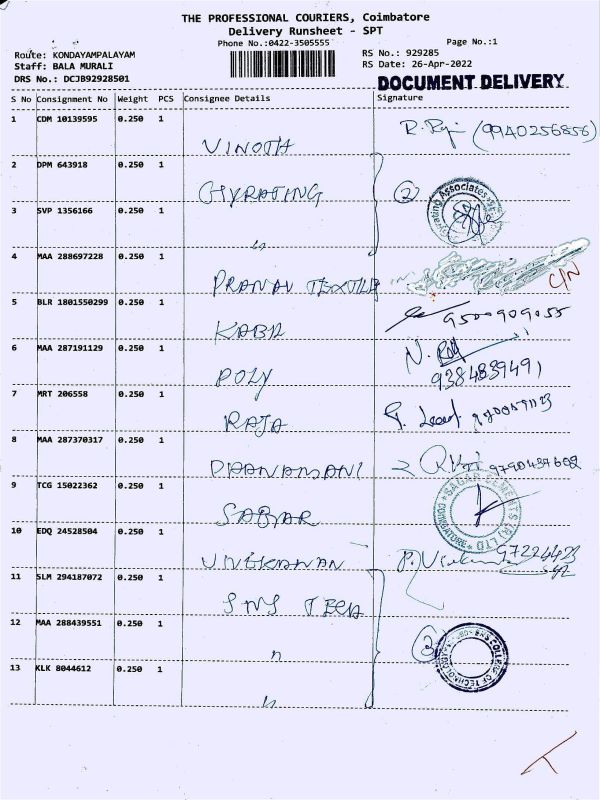 THE PROFESSIONAL COURIERS, Coimbatore
Delivery Runsheet - SPT
Phone No.:0422-3505555
Page No.:1
Route: KONDAYAMPALAYAM
RS No.: 929285
Staff: BALA MURALI
RS Date: 26-Apr-2022
DRS No.: DCJB92928501
DOCUMENT DELIVERY
S No Consignment No Weight PCS Consignee Details Signature
1 CDM 10139595 0.250 1 VINOTH (9940256856)
2 DPM 643918 0.250 1 GYRATING 2 Gyrating Associates
3 SVP 1356166 0.250 1 "
4 MAA 288697228 0.250 1 PRANAV TEXTILE C/N
5 BLR 1801550299 0.250 1 KABA 9500909055
6 MAA 287191129 0.250 1 POLY N. 9384839491
7 MRT 206558 0.250 1 RAJA
8 MAA 287370317 0.250 1 DHANAMANI 9790437602
9 TCG 15022362 0.250 1 SAGAR SAGAR CEMENTS (R) LTD COIMBATORE
10 EDQ 24528504 0.250 1 VIVEKANAN
11 SLM 294187072 0.250 1 SNS TECH
12 MAA 288439551 0.250 1 " 3 SNS COLLEGE OF TECHNOLOGY
13 KLK 8044612 0.250 1 "